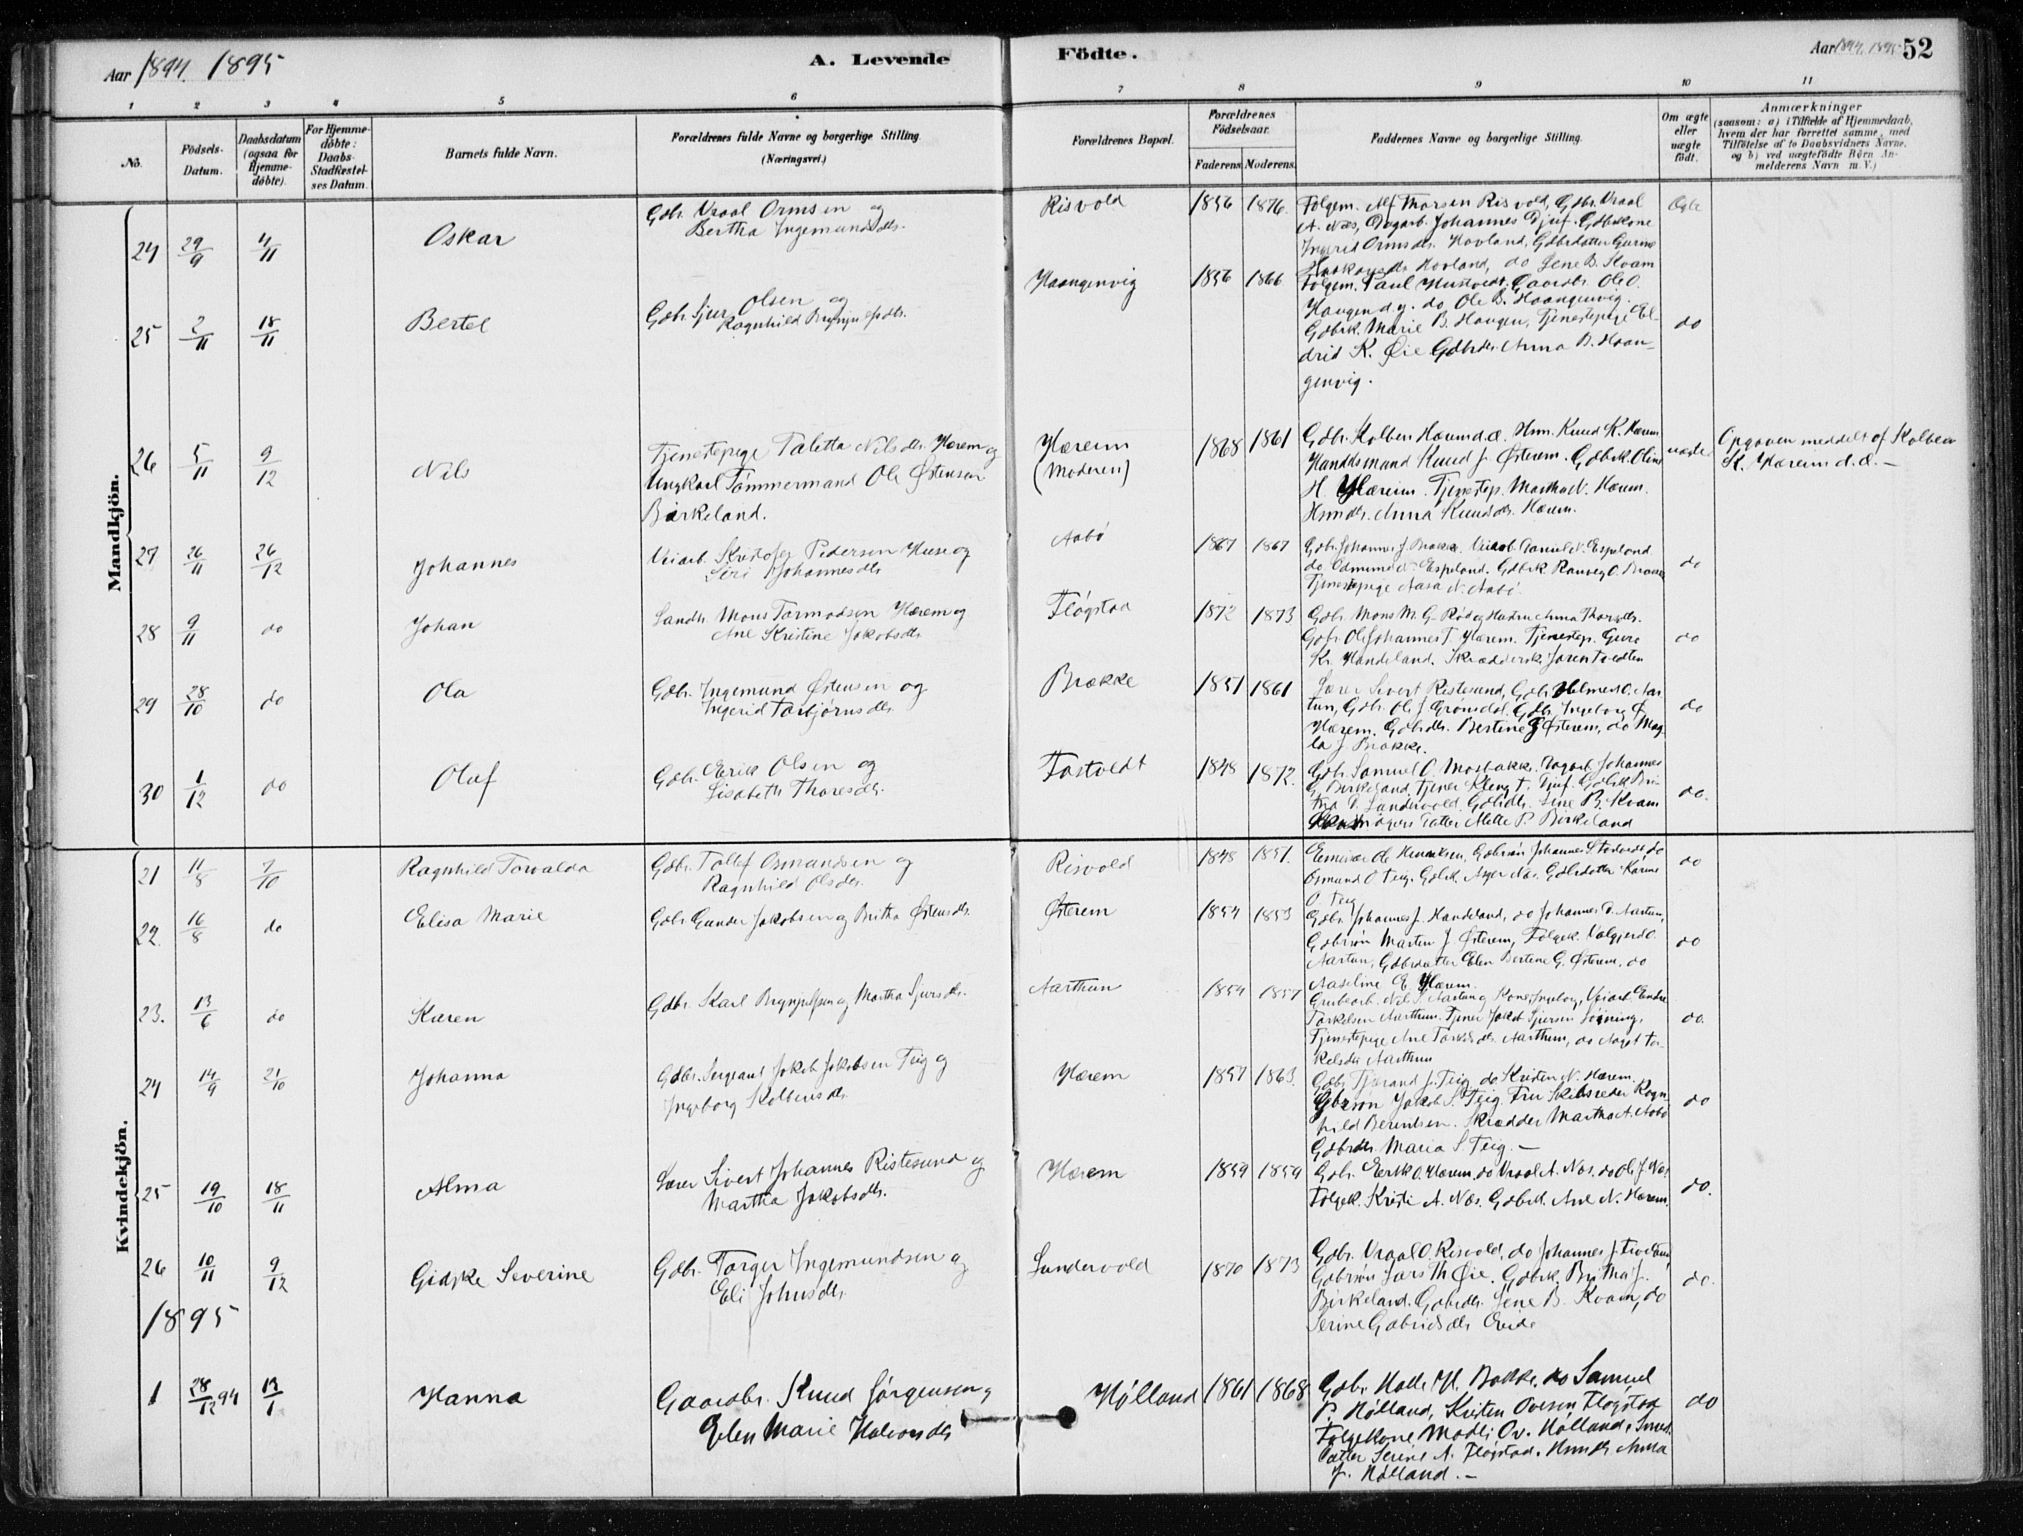 Aar 1894. 1895
A. Levende Födte.
Aar 1894. 1895 52
1 2 3 4 5 6 7 8 9 10 11
No.
Födsels-Datum.
Daabsdatum (ogsaa for Hjemme-döbte).
For Hjemme-döbte: Daabs-Stadfæstel-ses Datum.
Barnets fulde Navn.
Forældrenes fulde Navne og borgerlige Stilling. (Næringsvei.)
Forældrenes Bopæl.
Forældrenes Födselsaar.
Faderens. Moderens.
Faddernes Navne og borgerlige Stilling.
Om ægte eller uægte födt.
Anmærkninger
(saasom: a) i Tilfælde af Hjemmedaab,
hvem der har forrettet samme, med
Tilföielse af to Daabsvidners Navne,
og b) ved uægtefödte Börn An-
melderens Navn m. V.)
Mandkjön.
24 29/9 4/11 Oskar Gdbr. Vraal Ormsen og Bertha Ingemundsdtr. Risvold 1856 1876. Folgem. Alf Thorsen Risvold, Gdbr. Vraal
A. Næs, Dagarb. Johannes Djuf. Gdbrkone
Ingerid Ormsdtr. Hovland, Gdbrdatter Gurine
Haakonsdtr Hovland, do Jene B. Kvam
Ægte
25 2/11 18/11 Bertel Gdbr. Sjur Olsen og Ragnhild Brynjulfsdtr. Haangenvig 1856 1866 Folgem. Paul Hustvedt, Gaardbr. Ole O.
Haugen d.y. do Ole B. Haangenvig.
Gdbrk. Marie B. Haugen, Tjenestepige El-
drid K. Øie Gdbrdtr. Anna B. Haan-
genvig.
do
26 5/11 9/12 Nils Tjenestepige Taletta Nilsdtr. Hærem og
Ungkarl Tømmermand Ole Østensen
Birkeland.
Hærem (Moderen) 1868 1861 Gdbr. Kolben Hærem d.æ. Hmn. Knud K. Hærem
Handelsmand Knud J. Østerem. Gdbrk. Oline
H. Hæreim. Tjenestep. Martha N. Hærem.
Hmndtr. Anna Knudsdtr. Hærem.
uægte Opgaven meddelt af Kolben
K. Hærem d.æ. –
27 26/11 26/12 Johannes Veiarb. Kristofer Pedersen Huse og
Siri Johannesdtr Aabø 1867 1867 Gdbr. Johannes J. Brække. Veiarb. Daniel N. Espeland
do Edmund N. Espeland. Gdbrk. Ranveg O. Brække
Tjenestepige Aasa N. Aabø.
do
28 9/11 do Johan Sandtr. Mons Tormodsen Hærem og
Ane Kristine Jakobsdtr. Fløgstad 1872 1873 Gdbr. Mons M. G. Rød og Hustru Anna Thorsdtr.
Gdbr. Ole Johannes T. Hærem. Tjenestep. Guro
Kr. Handeland. Skrædderske Joren Tvedten
do
29 28/10 do Ola Gdbr. Ingemund Østensen og
Ingerid Torbjørnsdtr. Brække 1851 1861 Lærer Sivert Ristesund, Gdbr. Helmer O. Aar-
tun, Gdbr. Ole J. Grønsdal, Gdbr. Ingeborg Ø.
Hærem. Gdbrdtr. Bertine G Østerem, do Mag-
la J. Brække.
do
30 1/12 do Oluf Gdbr. Eerik Olsen og
Lisabeth Thoresdtr. Fostvedt 1848 1872. Gdbr. Samuel O. Mosbakke. Dagarb. Johannes
G. Birkeland, Tjener Kleng T. Djuf. Gdbrk. Bri-
tha O. Sandervold, Gdbrdtr. Jene B. Kvam
Skomagers Datter Mette P. Birkeland
do.
Kvindekjön.
21 11/8 7/10 Ragnhild Torvalda Gdbr. Tollef Osmundsen og
Ragnhild Olsdtr. Risvold 1848 1851. Eenevær Ole Henriksen, Gdbrsøn Johannes S. Fostvedt do
Osmund O. Teig. Gdbrk. Asger Næs. Gdbrdatter Karine
O. Teig
do
22. 16/8 do Elisa Marie Gdbr. Gunder Jakobsen og Britha Østensdtr. Østerem 1854 1853 Gdbr. Johannes J. Handeland, do Johannes D. Aartun,
Gdbrsøn Marten J. Østerem, Folgek. Valgjerd O.
Aartun, Gdbrdatter Elen Bertine G. Østerem, do
Aaseline E. Hærem.
do
23. 13/6 do Karen Gdbr. Karl Brynjulfsen og Martha Sjursdtr. Aarthun 1854 1857 Grubearb. Nils S. Aartun og Kone Ingeborg, Veiarb. Endre
Torkelsen Aarthun. Tjener Jakob Sjursen Løining,
Tjenestepige Ane Torkelsdtr. Aarthun, do Aagot Tor-
kelsdtr Aarthun
do.
24 14/9 21/10 Johanna Gdbr. Sergeant Jakob Jakobsen Teig og
Ingeborg Kolbensdtr. Hærem 1857 1863. Gdbr. Tjerand J. Teig, do Kristen N. Hærem.
Gdbrsøn Jakob S. Teig. Fru Skibsreder Ragn-
hild Berentsen. Skrædder Martha A. Aabø
Gdbrdtr Maria S Teig. –
do
25 19/10 18/11 Alma Lærer Sivert Johannes Ristesund og
Martha Jakobsdtr. Hærem 1859 1859 Gdbr. Eerik O. Hærem, do Vraal A. Næs. do Ole J. Næs.
Folgek. Kristi A. Næs. Gdbrk. Ane N. Hærem.
do.
26 10/11 9/12 Gidske Severine Gdbr. Torger Ingemundsen og
Eli Johnsdtr. Sandervold 1870 1873 Gdbr. Vraal O. Risvold, do Johannes J. Frøtland
Gdbrsøn Lars Th. Øie. Gdbrk. Britha J.
Birkeland. Gdbrdtr. Jene B. Kvam, do
Serine Gabrielsdtr. Eide
do.
1895
1 28/12 94 13/1 Hanna Gaardbr. Knud Jørgensen og
Elen Marie Halvorsdtr Hølland 1861 1868 Gdbr. Halle H. Bakke. do Samuel
P. Hølland, Kristen Ovesen Fløgstad
Folgekone Madli Ov. Hølland, Smed-
datter Serine A. Fløgstad. Hmndtr. Anna
J. Hølland. –
do